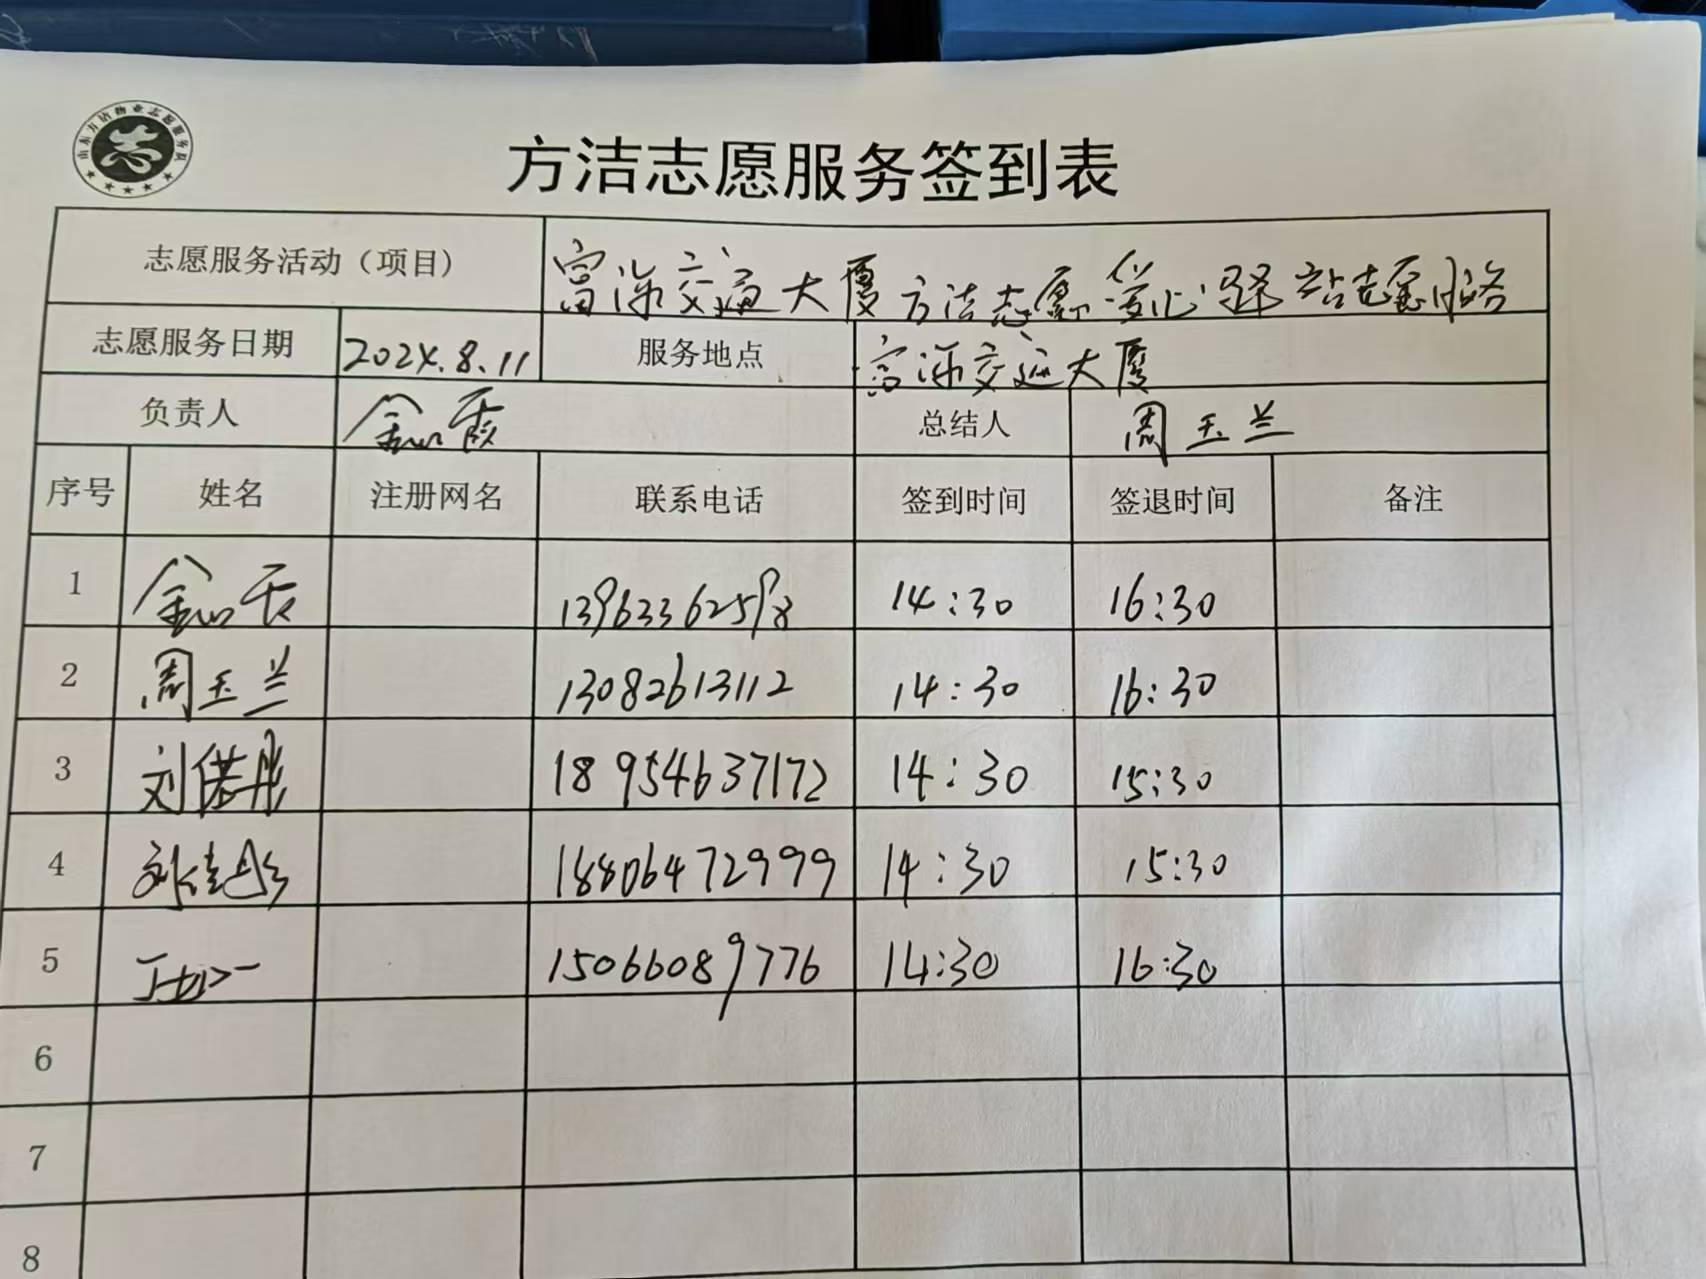 山东方洁物业志愿服务队
方洁志愿服务签到表
志愿服务活动（项目） 富源交通大厦方洁志愿爱心驿站志愿服务
志愿服务日期 2024.8.11 服务地点 富源交通大厦
负责人 总结人 周玉兰
序号 姓名 注册网名 联系电话 签到时间 签退时间 备注
1 13963362598 14:30 16:30
2 周玉兰 13082613112 14:30 16:30
3 刘偌彤 18954637172 14:30 15:30
4 18806472999 14:30 15:30
5 15066089776 14:30 16:30
6
7
8